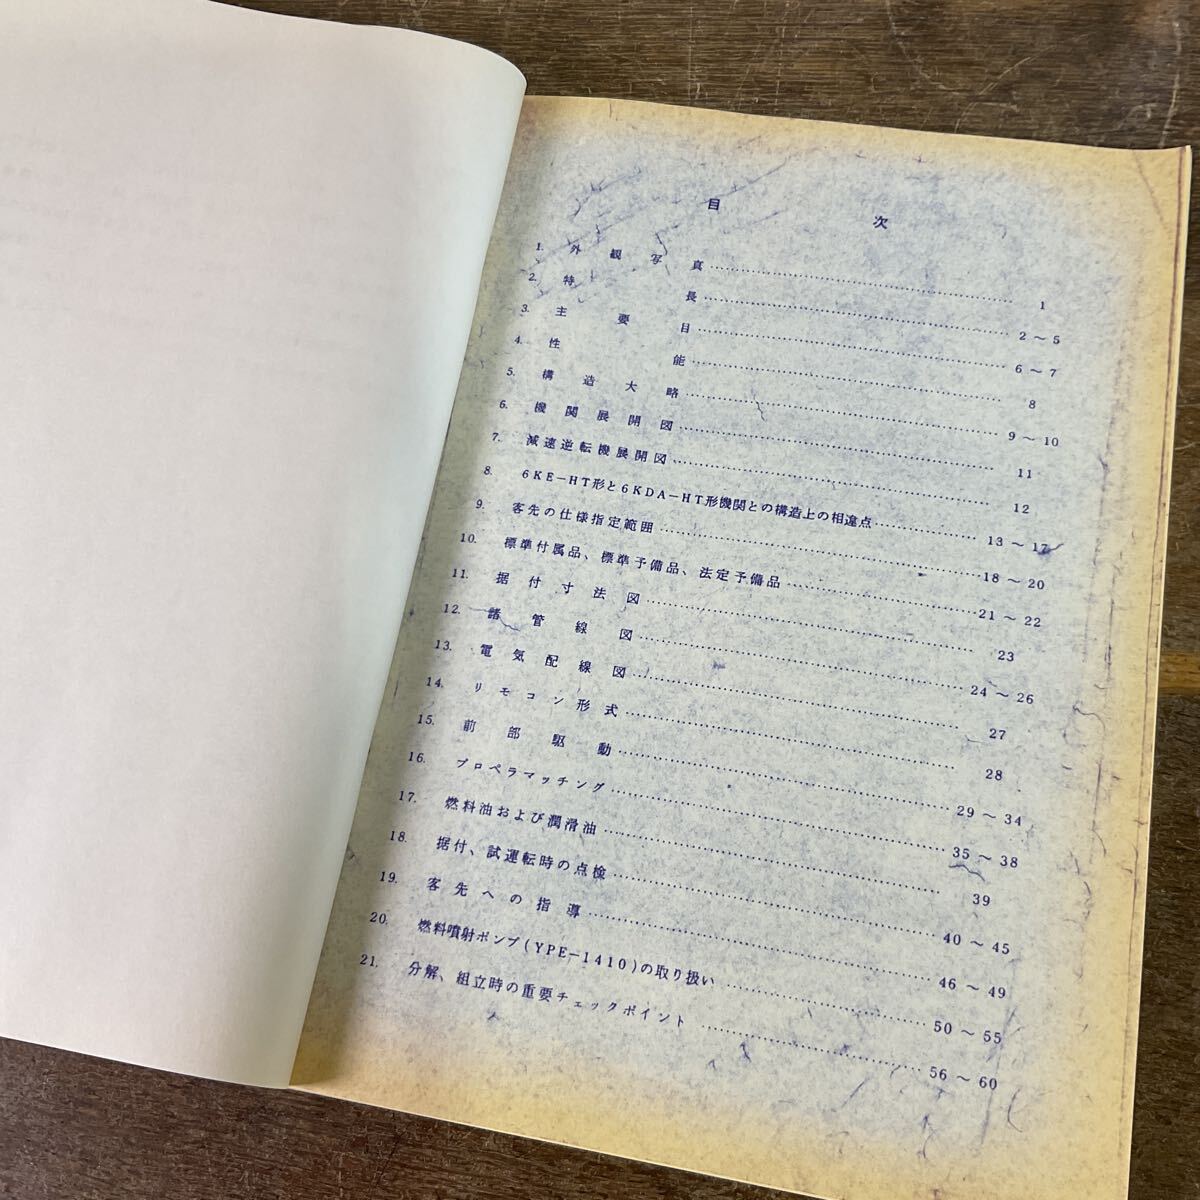 目次
1. 外観写真 1
2. 特長 2～5
3. 主要目 6～7
4. 性能 8
5. 構造大略 9～10
6. 機関展開図 11
7. 減速逆転機展開図 12
8. 6KE-HT形と6KDA-HT形機関との構造上の相違点 13～17
9. 客先の仕様指定範囲 18～20
10. 標準付属品、標準予備品、法定予備品 21～22
11. 据付寸法図 23
12. 諸管線図 24～26
13. 電気配線図 27
14. リモコン形式 28
15. 前部駆動 29～34
16. プロペラマッチング 35～38
17. 燃料油および潤滑油 39
18. 据付、試運転時の点検 40～45
19. 客先への指導 46～49
20. 燃料噴射ポンプ(YPE-1410)の取り扱い 50～55
21. 分解、組立時の重要チェックポイント 56～60